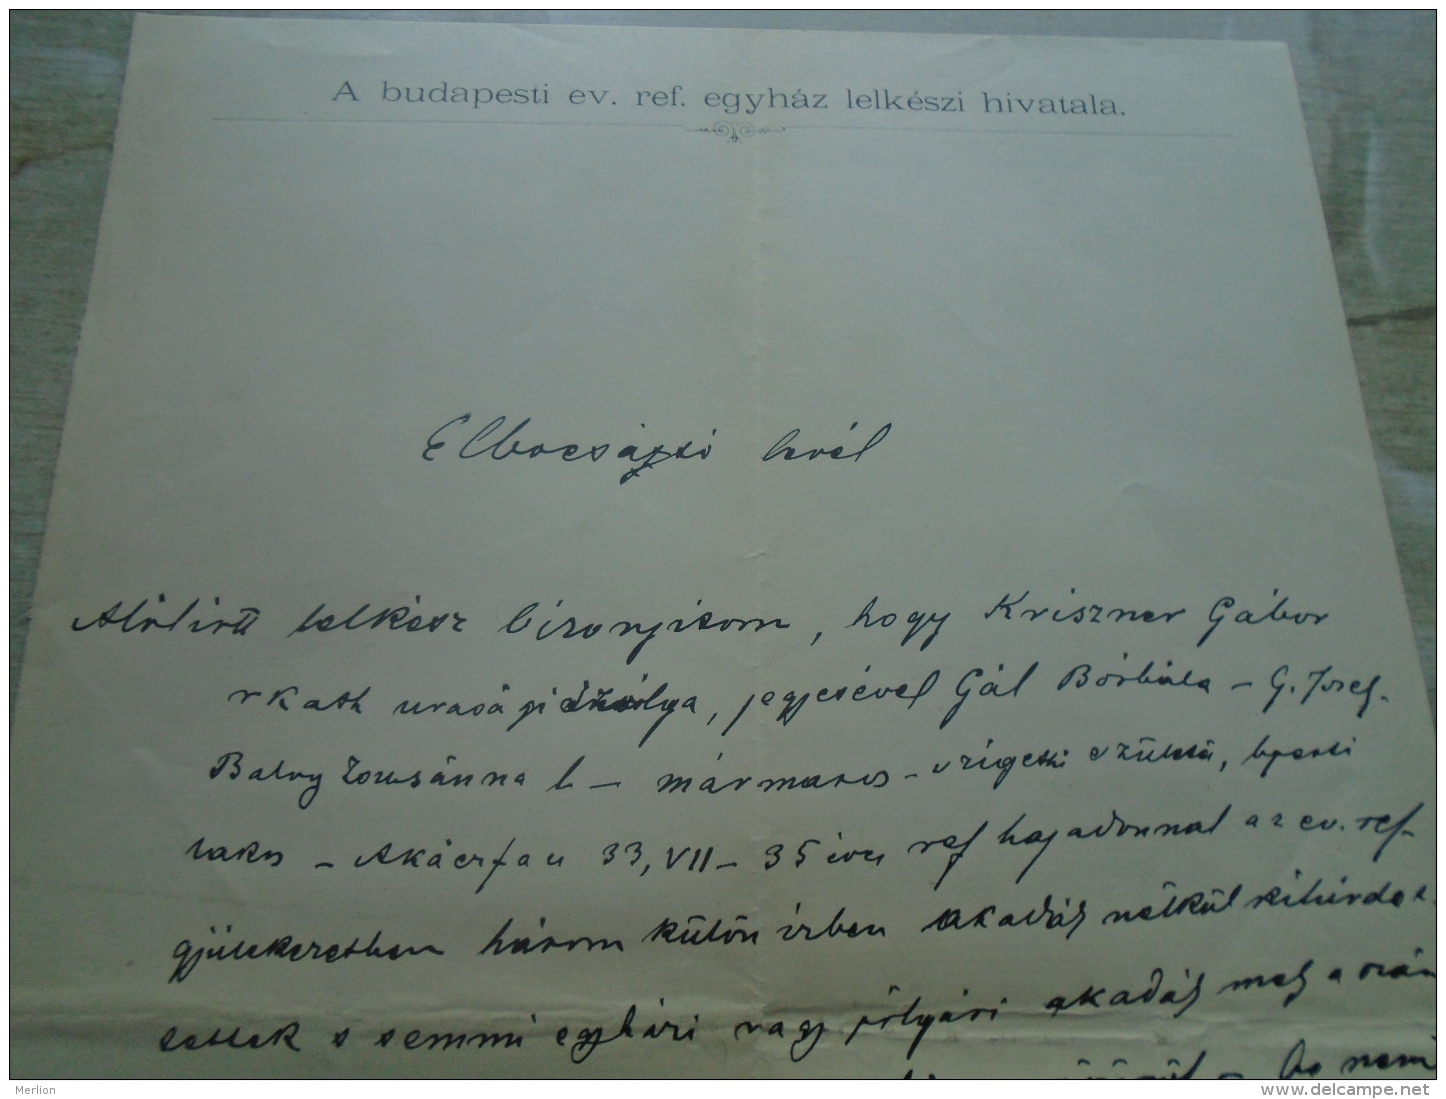 A budapesti ev. ref. egyház lelkészi hivatala.
Elbocsájtó levél
Alólirott lelkész bizonyitom, hogy Kriszner Gábor
r kath urasági szolga, jegyesével Gál Borbála – G. Józsf.
Zsuzsánna l – mármaros-szigeti születés, bpesti
lakos – Akáczfa u 33, VII – 35 éves ref hajadonnal az ev. ref.
gyülekezetben három külön izben akadály nélkül kihirdet
tettek s semmi egyházi vagy polgári akadály meg a szán
nem
Merlion
www.delcampe.net